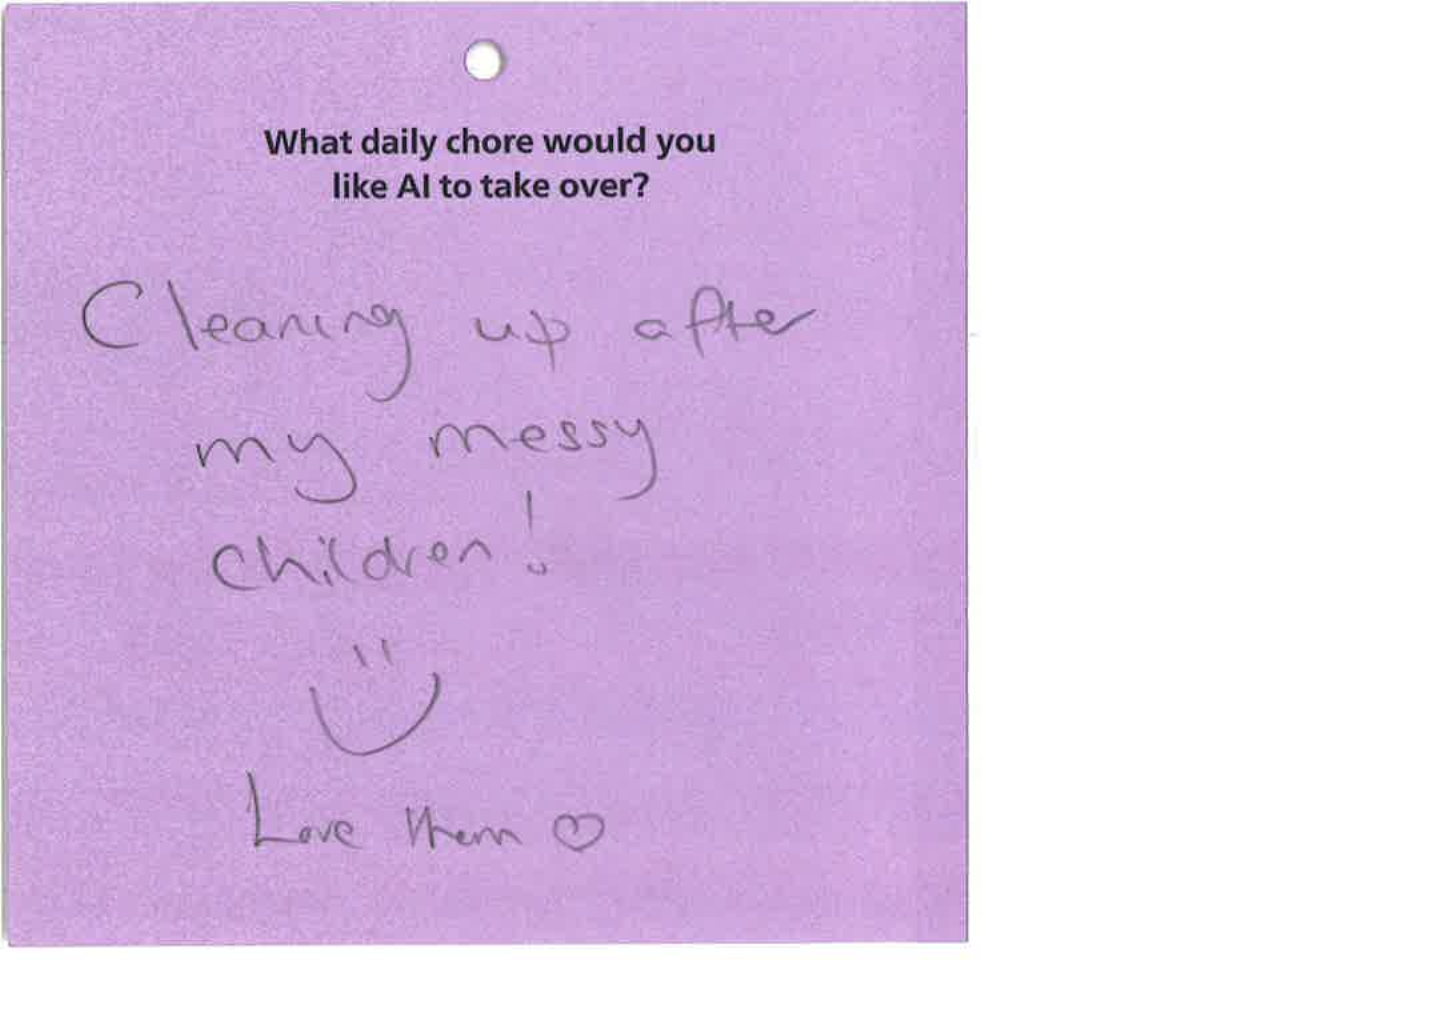 What daily chore would you
like AI to take over?
Cleaning up after
my messy
children!
Love them ♡